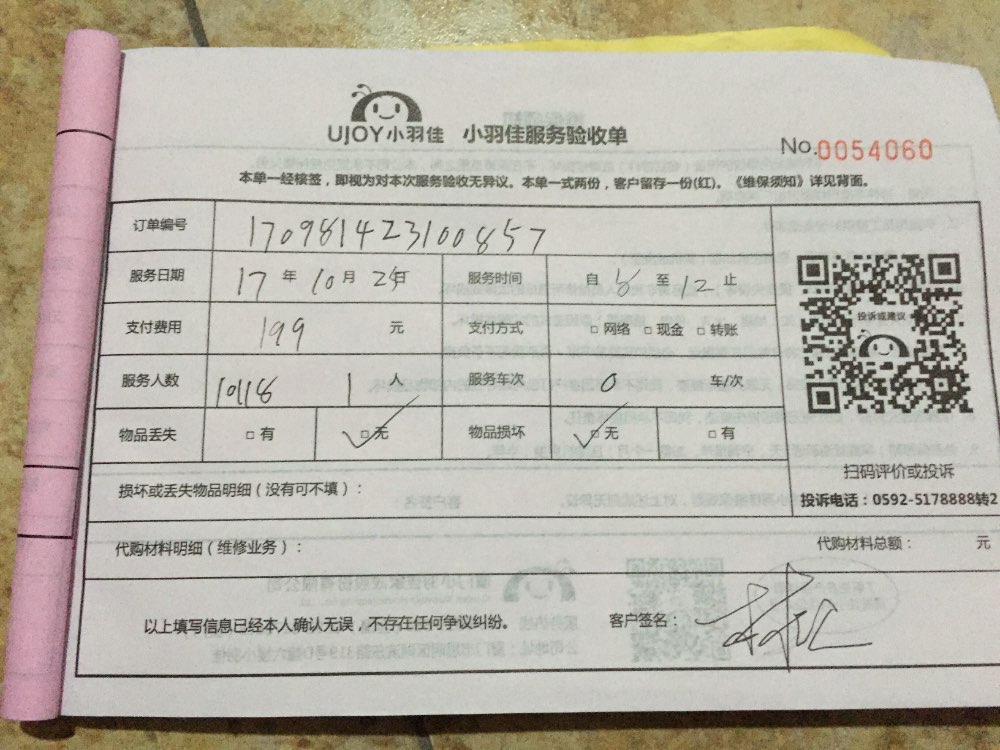 UJOY小羽佳 小羽佳服务验收单
No.0054060
本单一经核签，即视为对本次服务验收无异议。本单一式两份，客户留存一份(红)。《维保须知》详见背面。
订单编号 170981423100857
服务日期 17 年 10 月 日 服务时间 自 至 12 止
支付费用 199 元 支付方式 □ 网络 □ 现金 □ 转账
服务人数 10118 1 人 服务车次 0 车/次
物品丢失 □ 有 □ 无 物品损坏 □ 无 □ 有
投诉或建议
扫码评价或投诉
投诉电话：0592-5178888转2
损坏或丢失物品明细（没有可不填）：
代购材料明细（维修业务）： 代购材料总额： 元
以上填写信息已经本人确认无误，不存在任何争议纠纷。 客户签名：